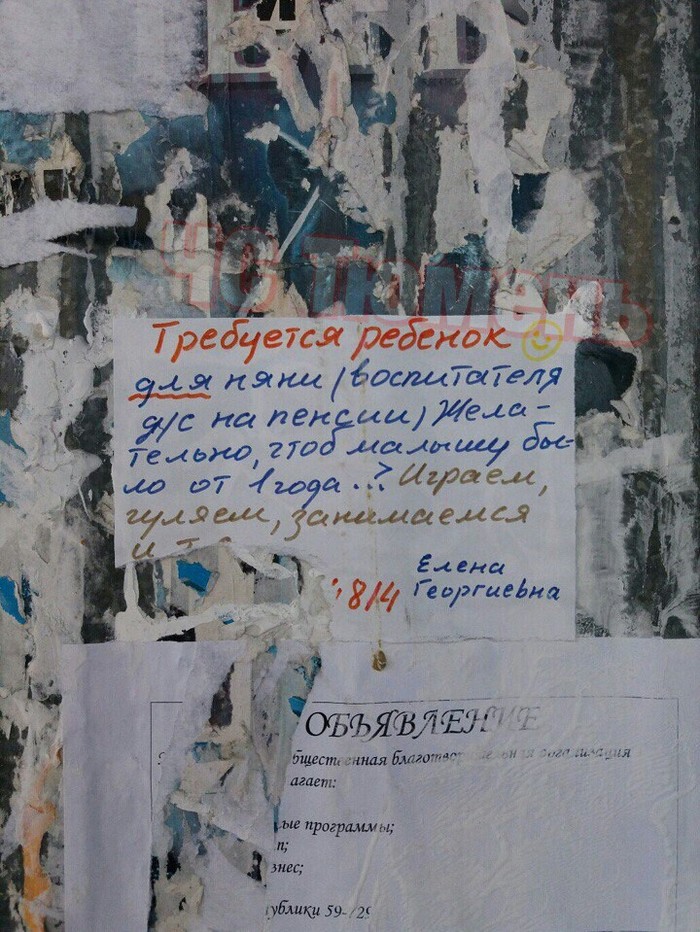 ЧС Тюмень
Требуется ребенок
для няни (воспитателя
д/с на пенсии) Жела-
тельно, чтоб малышу бы-
ло от 1 года...? Играем,
гуляем, занимаемся
и т
8/4
Елена
Георгиевна
ОБЪЯВЛЕНИЕ
бщественная
агает:
ые программы;
п;
знес;
ублики 59-/29